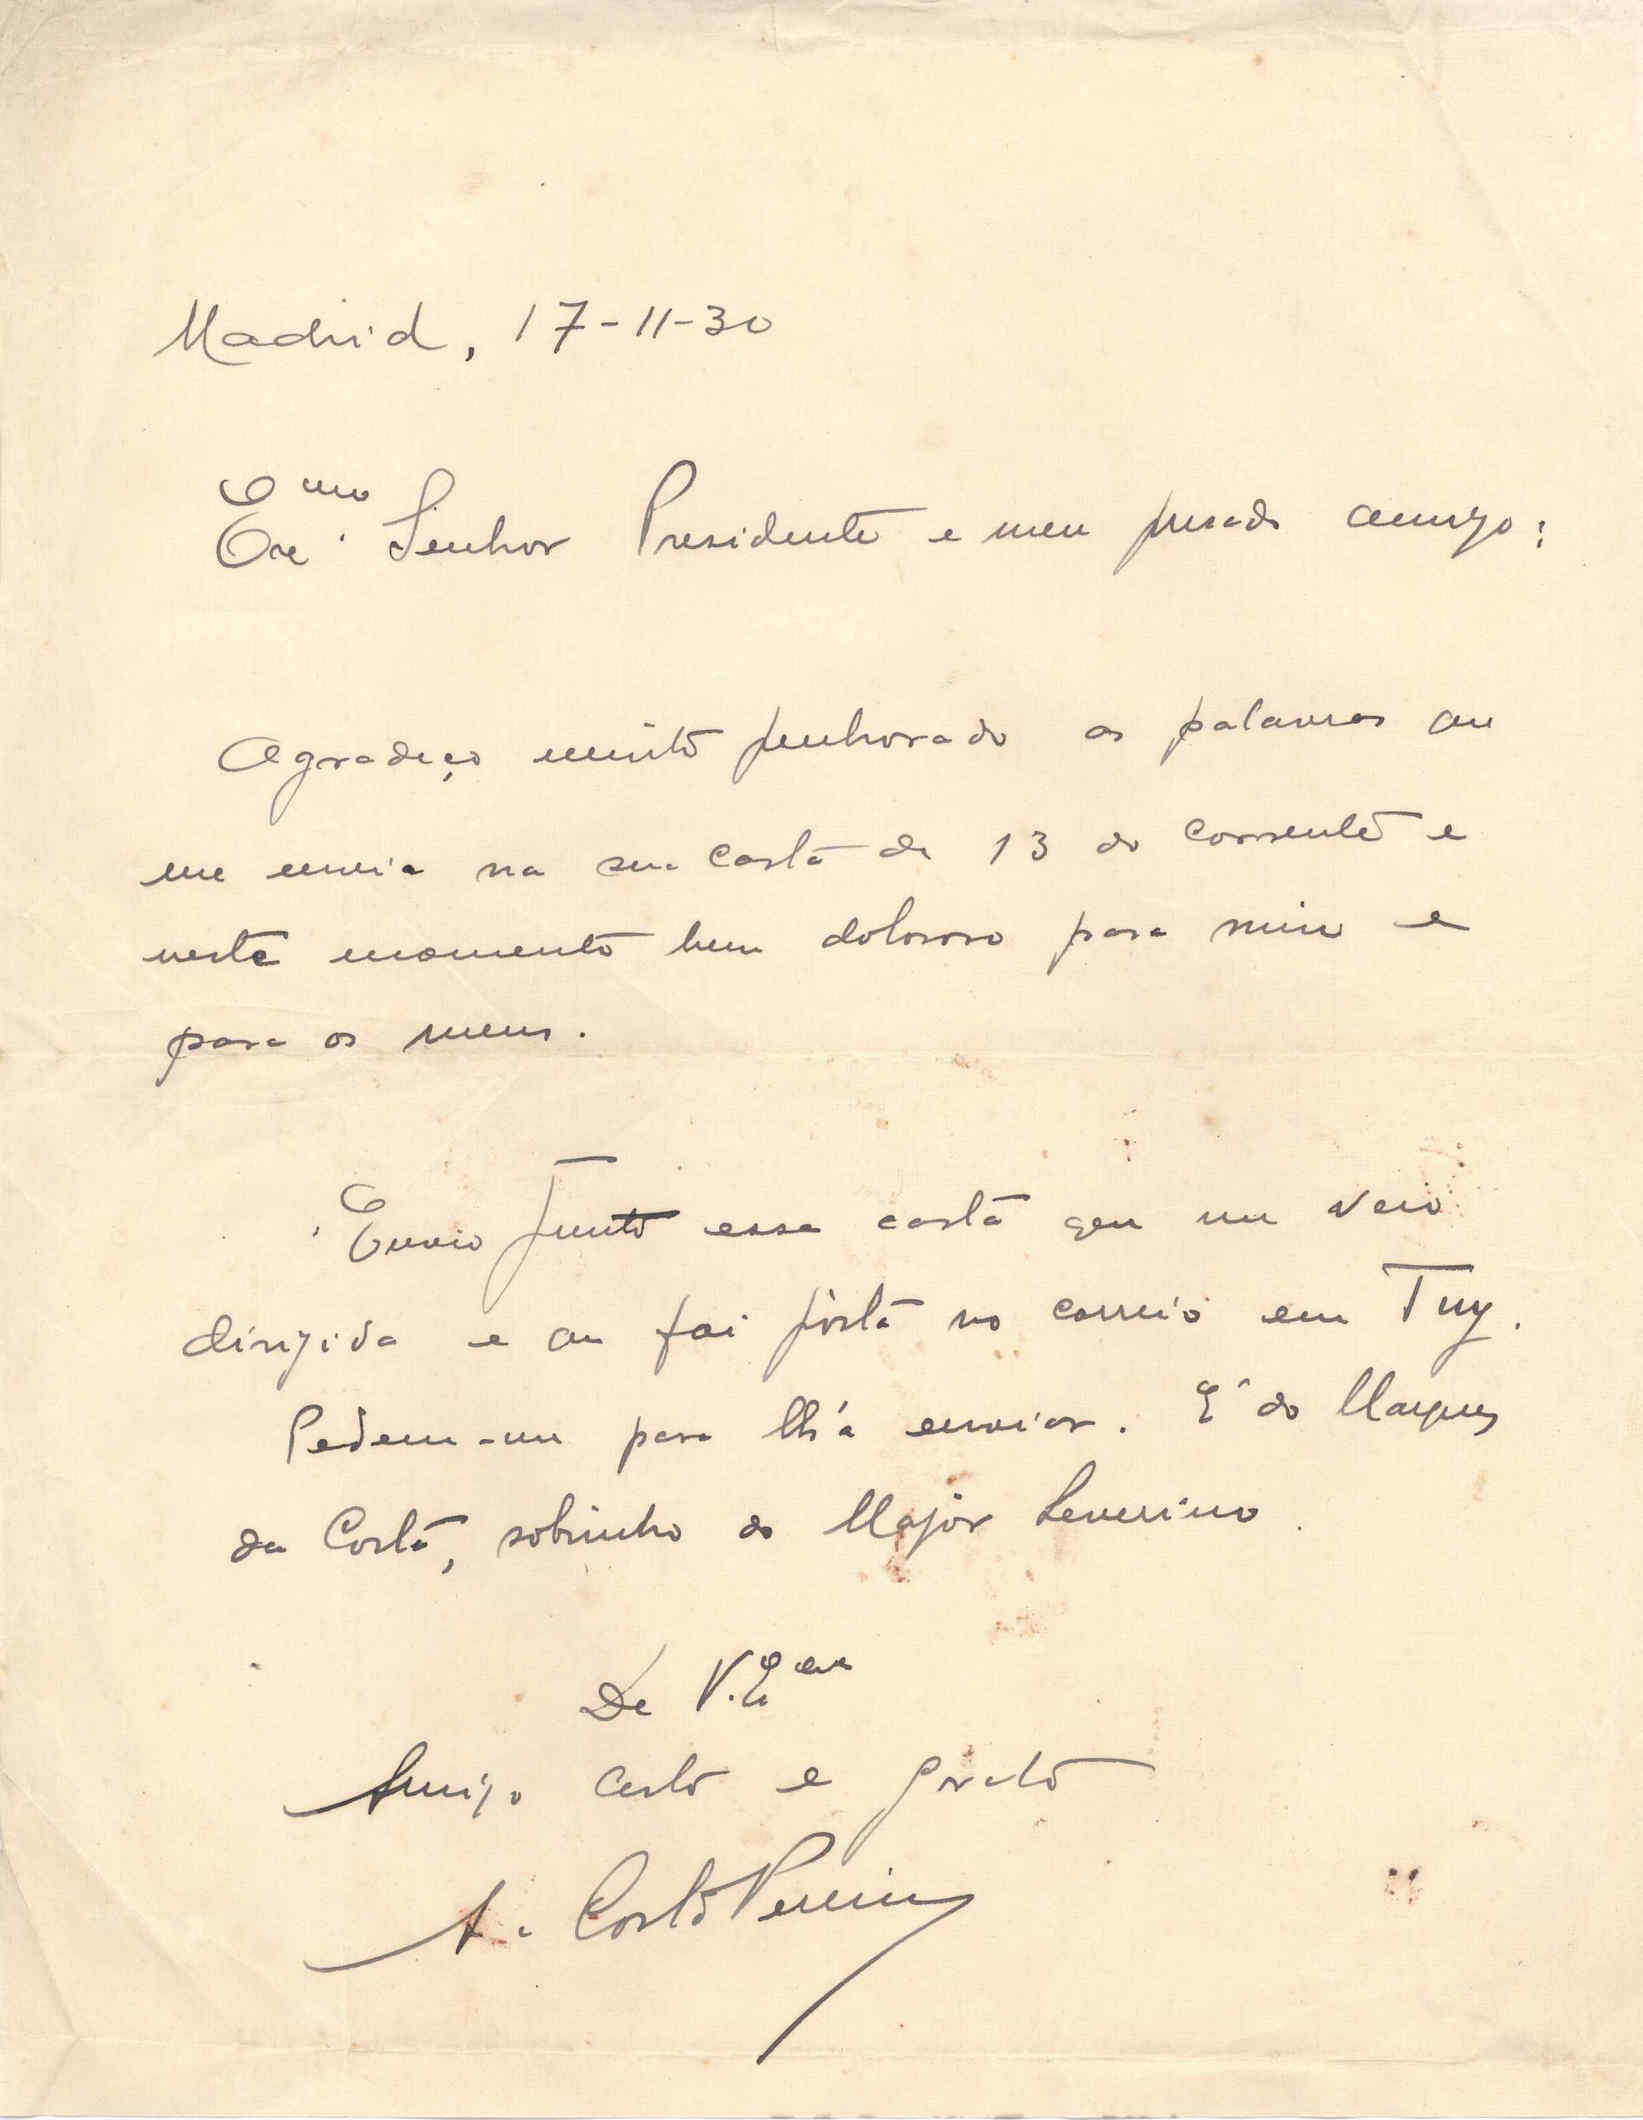 Madrid, 17-11-30
Exmo. Senhor Presidente e meu prezado amigo:
Agradeço muito penhorado as palavras que
me envia na sua carta de 13 do corrente e
neste momento bem doloroso para mim e
para os meus.
Envio junto essa carta que me veio
dirigida e que foi posta no correio em Tuy.
Pedem-me para lh'a enviar. E' do Marques
da Costa, sobrinho do Major Severino.
De V. Exa
Amigo certo e grato
A. Costa Pereira